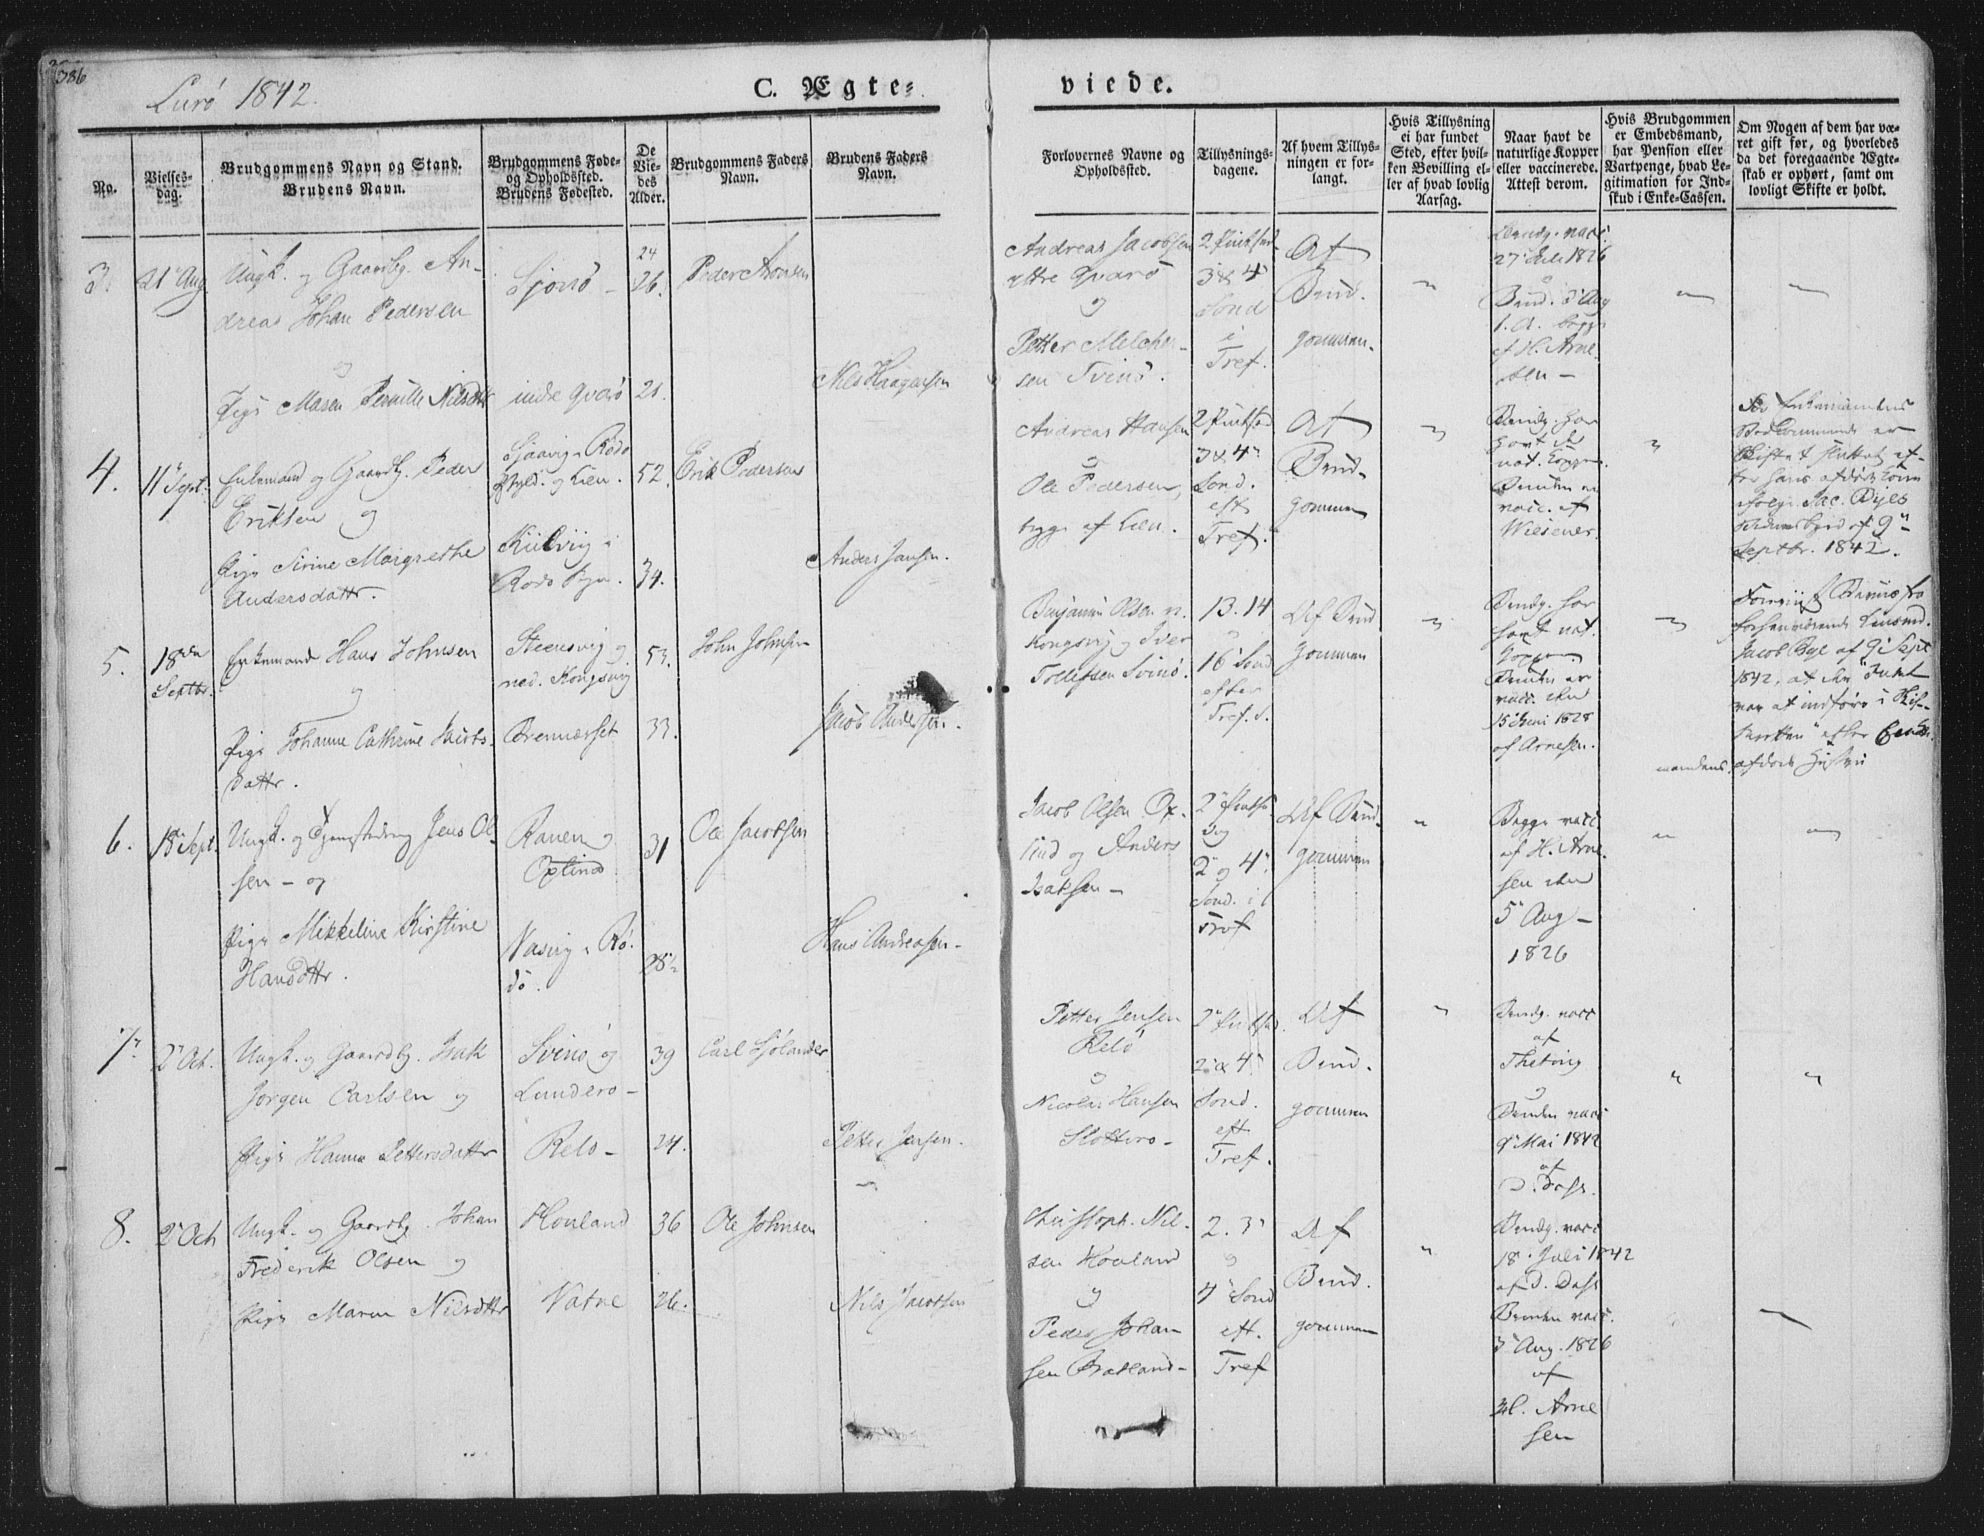 386
Lurö 1842.
C. Ægte=
viede.
No.
Vielses-
dag.
Brudgommens Navn og Stand.
Brudens Navn.
Brudgommens Føde-
og Opholdssted.
Brudens Fødested.
De
Vie-
des
Alder.
Brudgommens Faders
Navn.
Brudens Faders
Navn.
Forlovernes Navne og
Opholdssted.
Tillysnings-
dagene.
Af hvem Tillys-
ningen er for-
langt.
Hvis Tillysning
ei har fundet
Sted, efter hvil-
ken Bevilling el-
ler af hvad lovlig
Aarsag.
Naar havt de
naturlige Kopper
eller vaccinerede.
Attest derom.
Hvis Brudgommen
er Embedsmand,
har Pension eller
Vartpenge, hvad Le-
gitimation for Ind-
skud i Enke-Cassen.
Om Nogen af dem har væ-
ret gift før, og hvorledes
da det foregaaende Ægte-
skab er ophørt, samt om
lovligt Skifte er holdt.
3.
21 Aug.
Ungk. og Gaardbg. An-
dreas Johan Pedersen
og
Pige Maren Pernille Nilsdttr
Sjonö -
indre Qvarö
24
26.
21.
Peder Aronsen
Nils Haagensen
Andreas Jacobsen
ytre Qvarö
og
Petter Melcher-
sen Svinö.
3 & 4
Sond
i
Tref.
Af
Brud-
gommen.
Brudg. vacc.
27 Juli 1826
Brud. d. Aug
af H. Arne-
sen -
4.
11 Sept.
Enkemand og Gaardbg. Peder
Eriksen og
Pige Sirine Margrethe
Andersdattr.
Sjaavig i Rödö
og Lien.
Kilvig i
Rödö
52.
34.
Erik Pedersen
Anders Jansen.
Andreas Hansen
og
Ole Pedersen,
begge af Lien.
3 & 4
Sond.
eft
Tref.
Af
Brud-
gommen
Brudg. har
havt de
nat. Kopper.
Bruden er
vacc. af
Wiesener.
Septbr. 1842.
5.
18de
Septbr.
Enkemand Hans Johnsen
og
Pige Johanne Cathrine Jacobs-
dattr.
Steensvig og
ned. Kongsvig
Brennæsset
53.
33.
John Johnsen
Jacob Andersen.
Benjamin Olsen n.
Kongsvig og Iver
Tollefsen Svinö.
13. 14
og
16 Sond
efter
Tref.
Af Brud
gommen
Brudg. har
havt nat.
Kopper.
Bruden er
vacc. den
15 Juni 1828
af Arnesen.
Jacob Bye af 9 Sept
1842, at der Intet
var at indføre i Skif-
teretten efter Enke-
mandens afdøde Hustru
6.
18 Sept.
Ungk. og Tjenestedreng Jens Ol-
sen - og
Pige Mikkeline Kirstine
Hansdttr.
Ranen og
Öxtind
Næsvig i Rö-
dö.
31
28½
Ole Jacobsen
Hans Andreasen -
Jacob Olsen Öx-
tind og Anders
Isaksen -
2 og 4
Sond. i
Tref
Af Brud-
gommen
Begge vacc
af H. Arne-
sen den
5 Aug -
1826
7.
2 Oct.
Ungk. og Gaardbg. Isak
Jørgen Carlsen og
Pige Hanna Pettersdattr
Svinö og
Lunderö -
Relö -
39
24.
Carl Sjölander
Petter Jensen.
Petter Jensen
Relö
og
Nicolai Hansen
Slotterö -
2 & 4
Sond.
eft
Tref.
Af
Brud-
gommen
Brudg. vacc
af
og
Bruden vacc
9 Mai 1842
af
D. Dass.
8.
2 Oct
Ungk. og Gaardbg. Johan
Frederik Olsen og
Pige Maren Nilsdttr
Hovland
Vatne
36
26.
Ole Johnsen
Nils Jacobsen
Christoph. Nil-
sen Hovland
og
Peder Johan
sen Bratland -
2. 3
og
4 Sond
eft.
Tref
Af
Brud-
gommen
Brudg. vacc
18 Juli 1842
af D. Dass
Bruden vacc.
3 Aug. 1826
af
H. Arne
sen